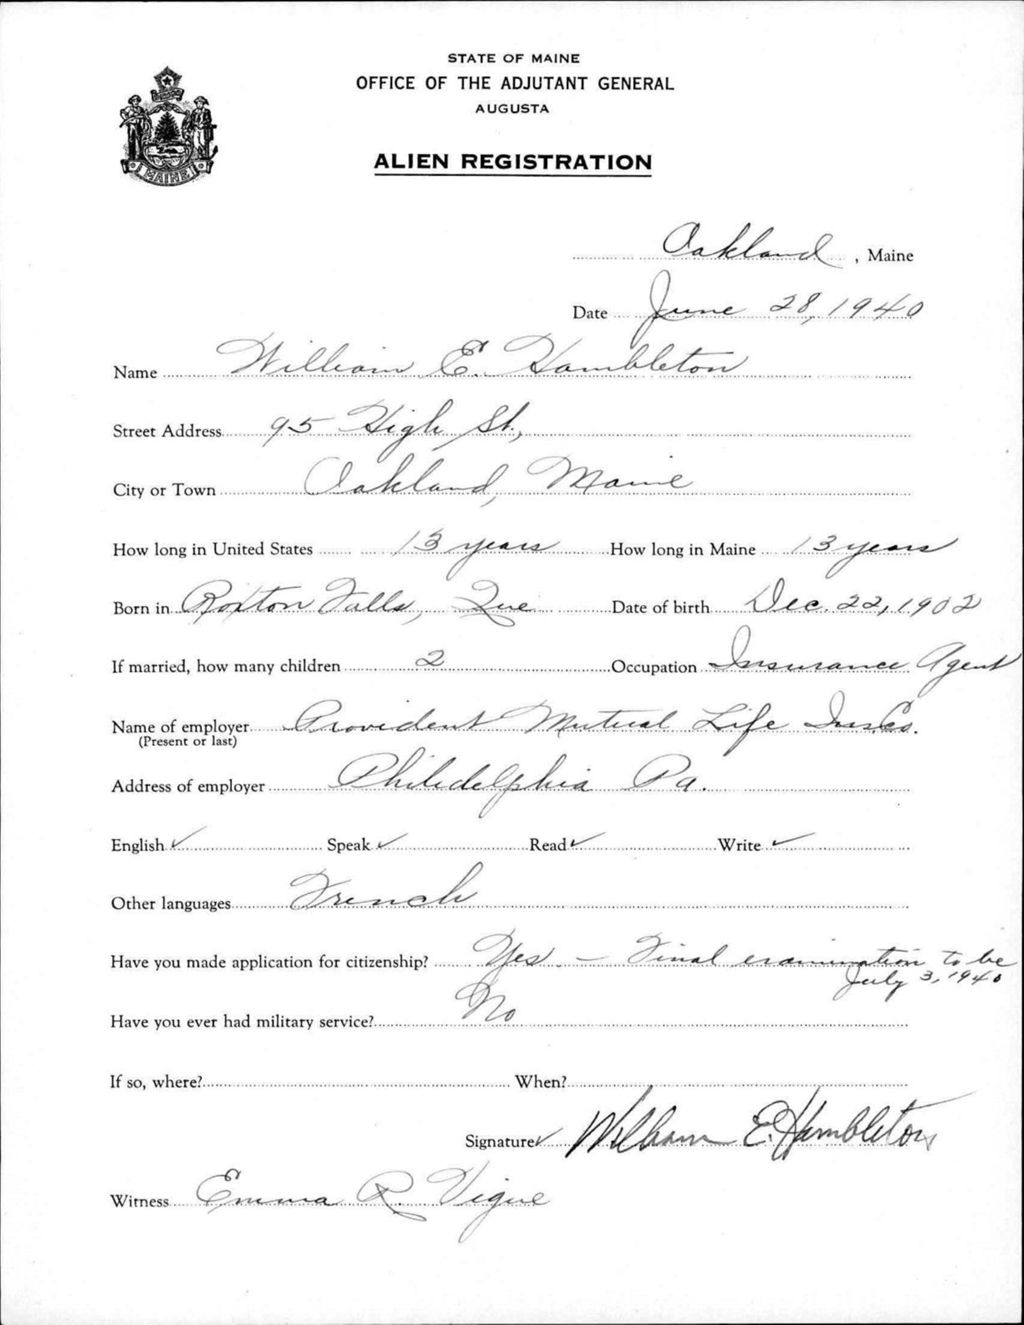 STATE OF MAINE
OFFICE OF THE ADJUTANT GENERAL
AUGUSTA
ALIEN REGISTRATION
MAINE
Oakland, Maine
Date June 28, 1940
Name William E. Hambleton
Street Address 95 High St.,
City or Town Oakland, Maine
How long in United States 13 years How long in Maine 13 years
Born in Roxton Falls, Que Date of birth Dec. 22, 1902
If married, how many children 2 Occupation Insurance Agent
Name of employer Provident Mutual Life Ins. Co.
(Present or last)
Address of employer Philadelphia Pa.
English ✓ Speak ✓ Read ✓ Write ✓
Other languages French
Have you made application for citizenship? Yes - Final examination to be
July 3, 1940
Have you ever had military service? No
If so, where? When?
Signature ✓ William E. Hambleton
Witness Emma R. Vigue